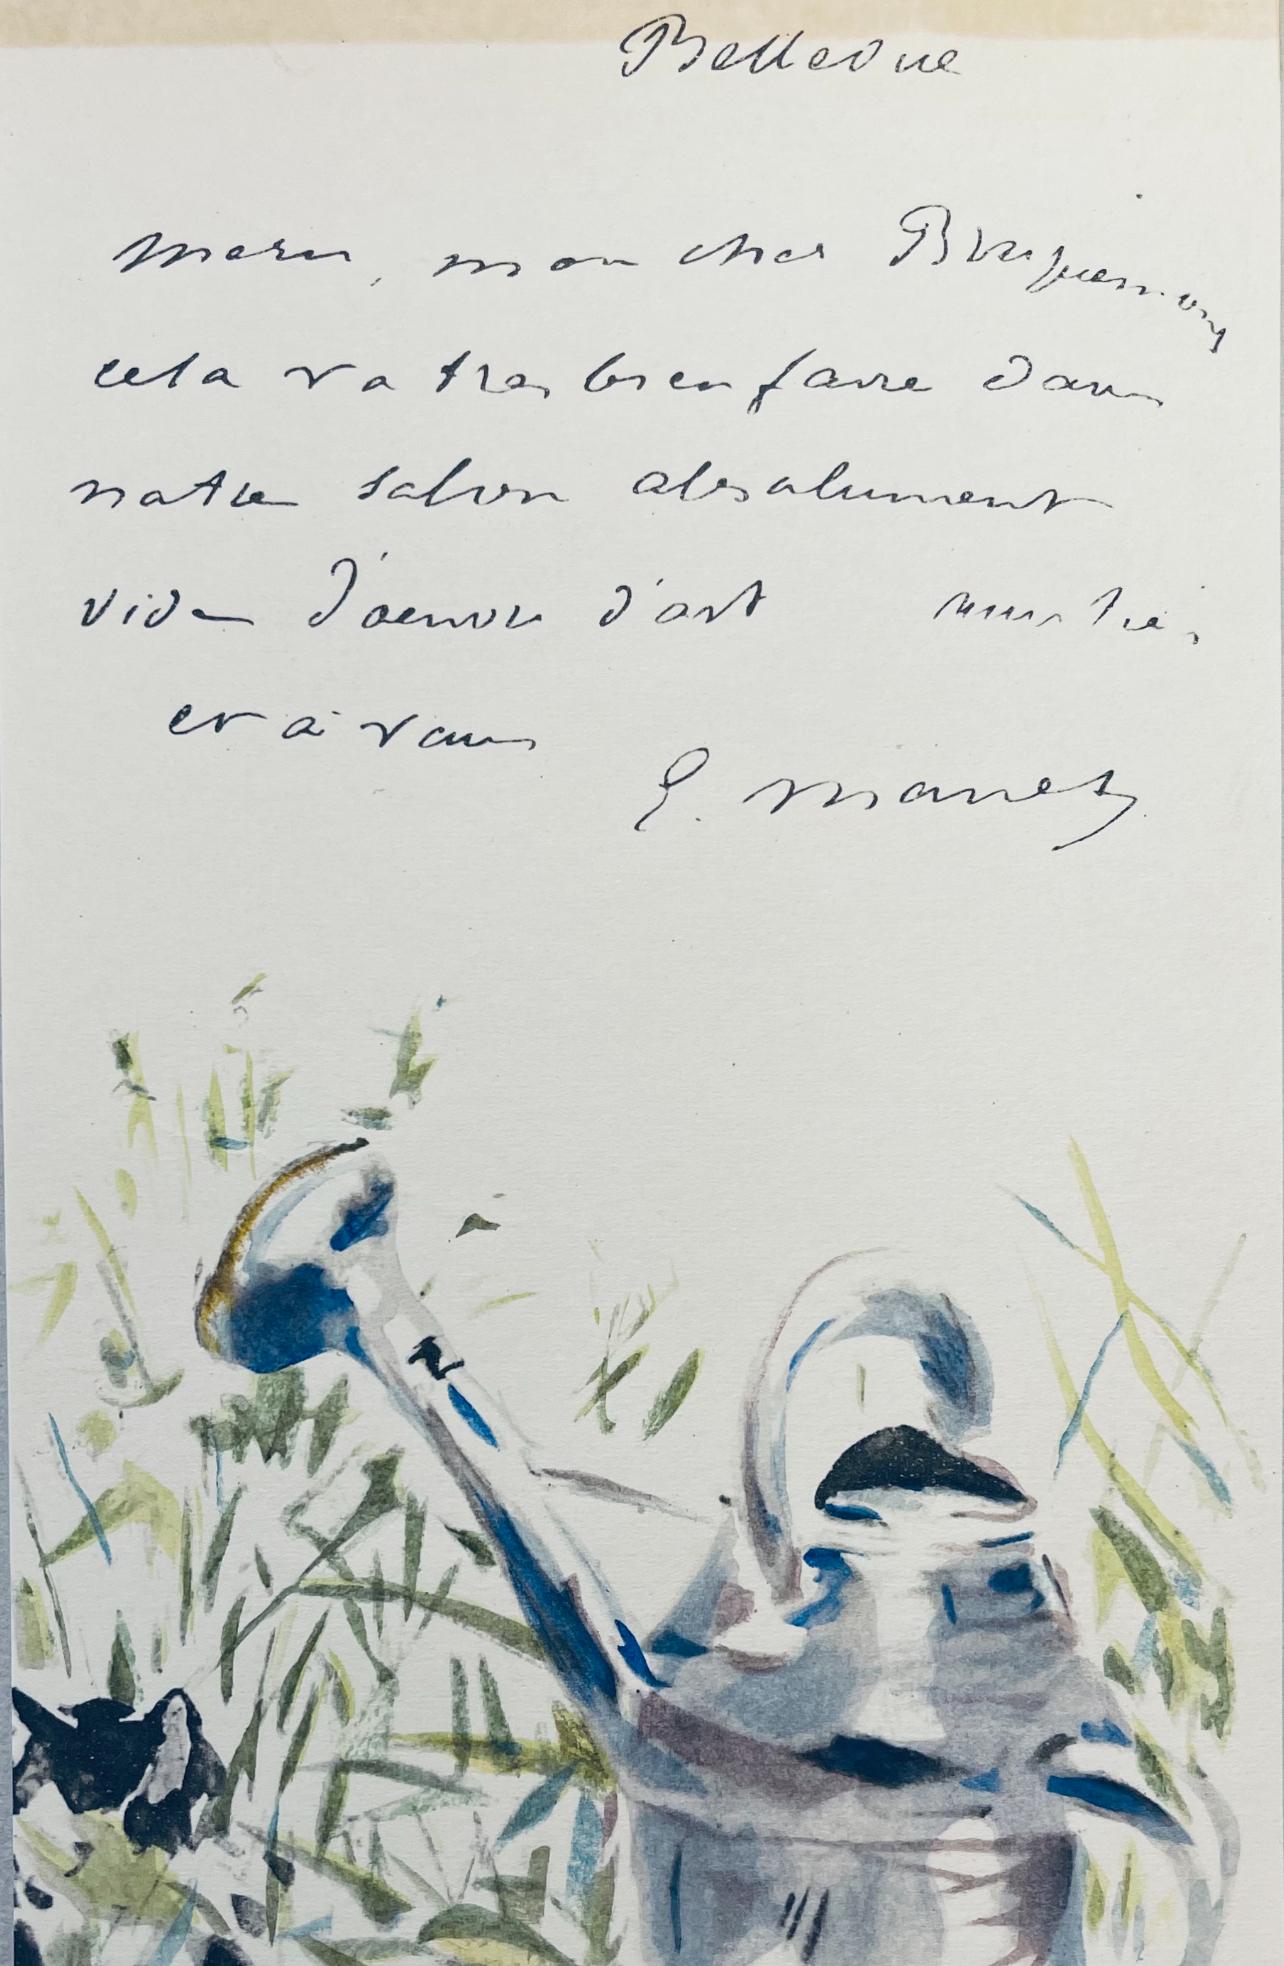 Bellevue
merci, mon cher Bracquemond
cela va tres bien faire dans
notre salon absolument
vide d'oeuvre d'art
et à vous
E. Manet